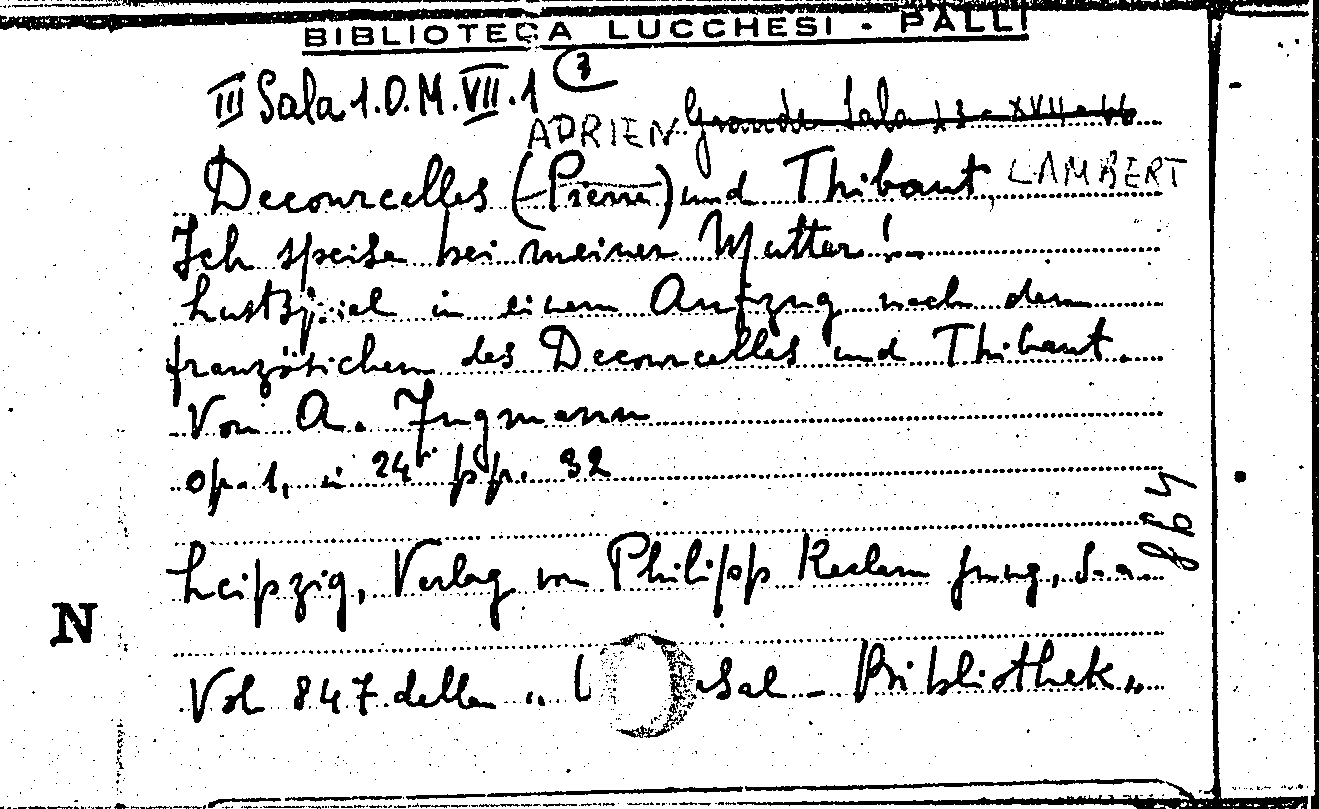 BIBLIOTECA LUCCHESI - PALLI
III Sala 1.O.M.VII.1 (3
ADRIEN Grande Sala 23-XVII-66
Decourcelles (Pierre) und Thibaut LAMBERT
Ich speise bei meiner Mutter!
Lustspiel in einem Aufzug nach dem
französischen des Decourcelles und Thibaut.
Von A. Jugmann
op. 1, in 24° pp. 32
Leipzig, Verlag von Philipp Reclam jung, s.a.
Vol 847 della " sal - Bibliothek "
N